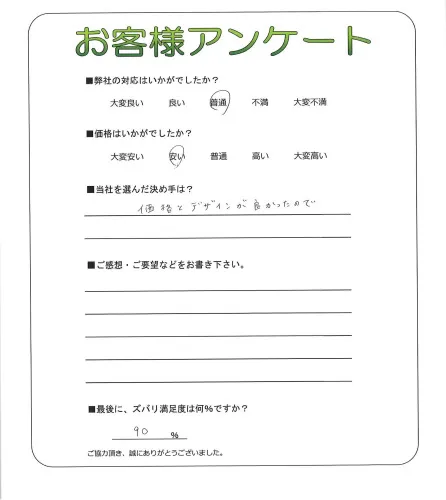 お客様アンケート
■弊社の対応はいかがでしたか？
大変良い 良い 普通 不満 大変不満
■価格はいかがでしたか？
大変安い 安い 普通 高い 大変高い
■当社を選んだ決め手は？
価格とデザインが良かったので
■ご感想・ご要望などをお書き下さい。
■最後に、ズバリ満足度は何％ですか？
90 ％
ご協力頂き、誠にありがとうございました。